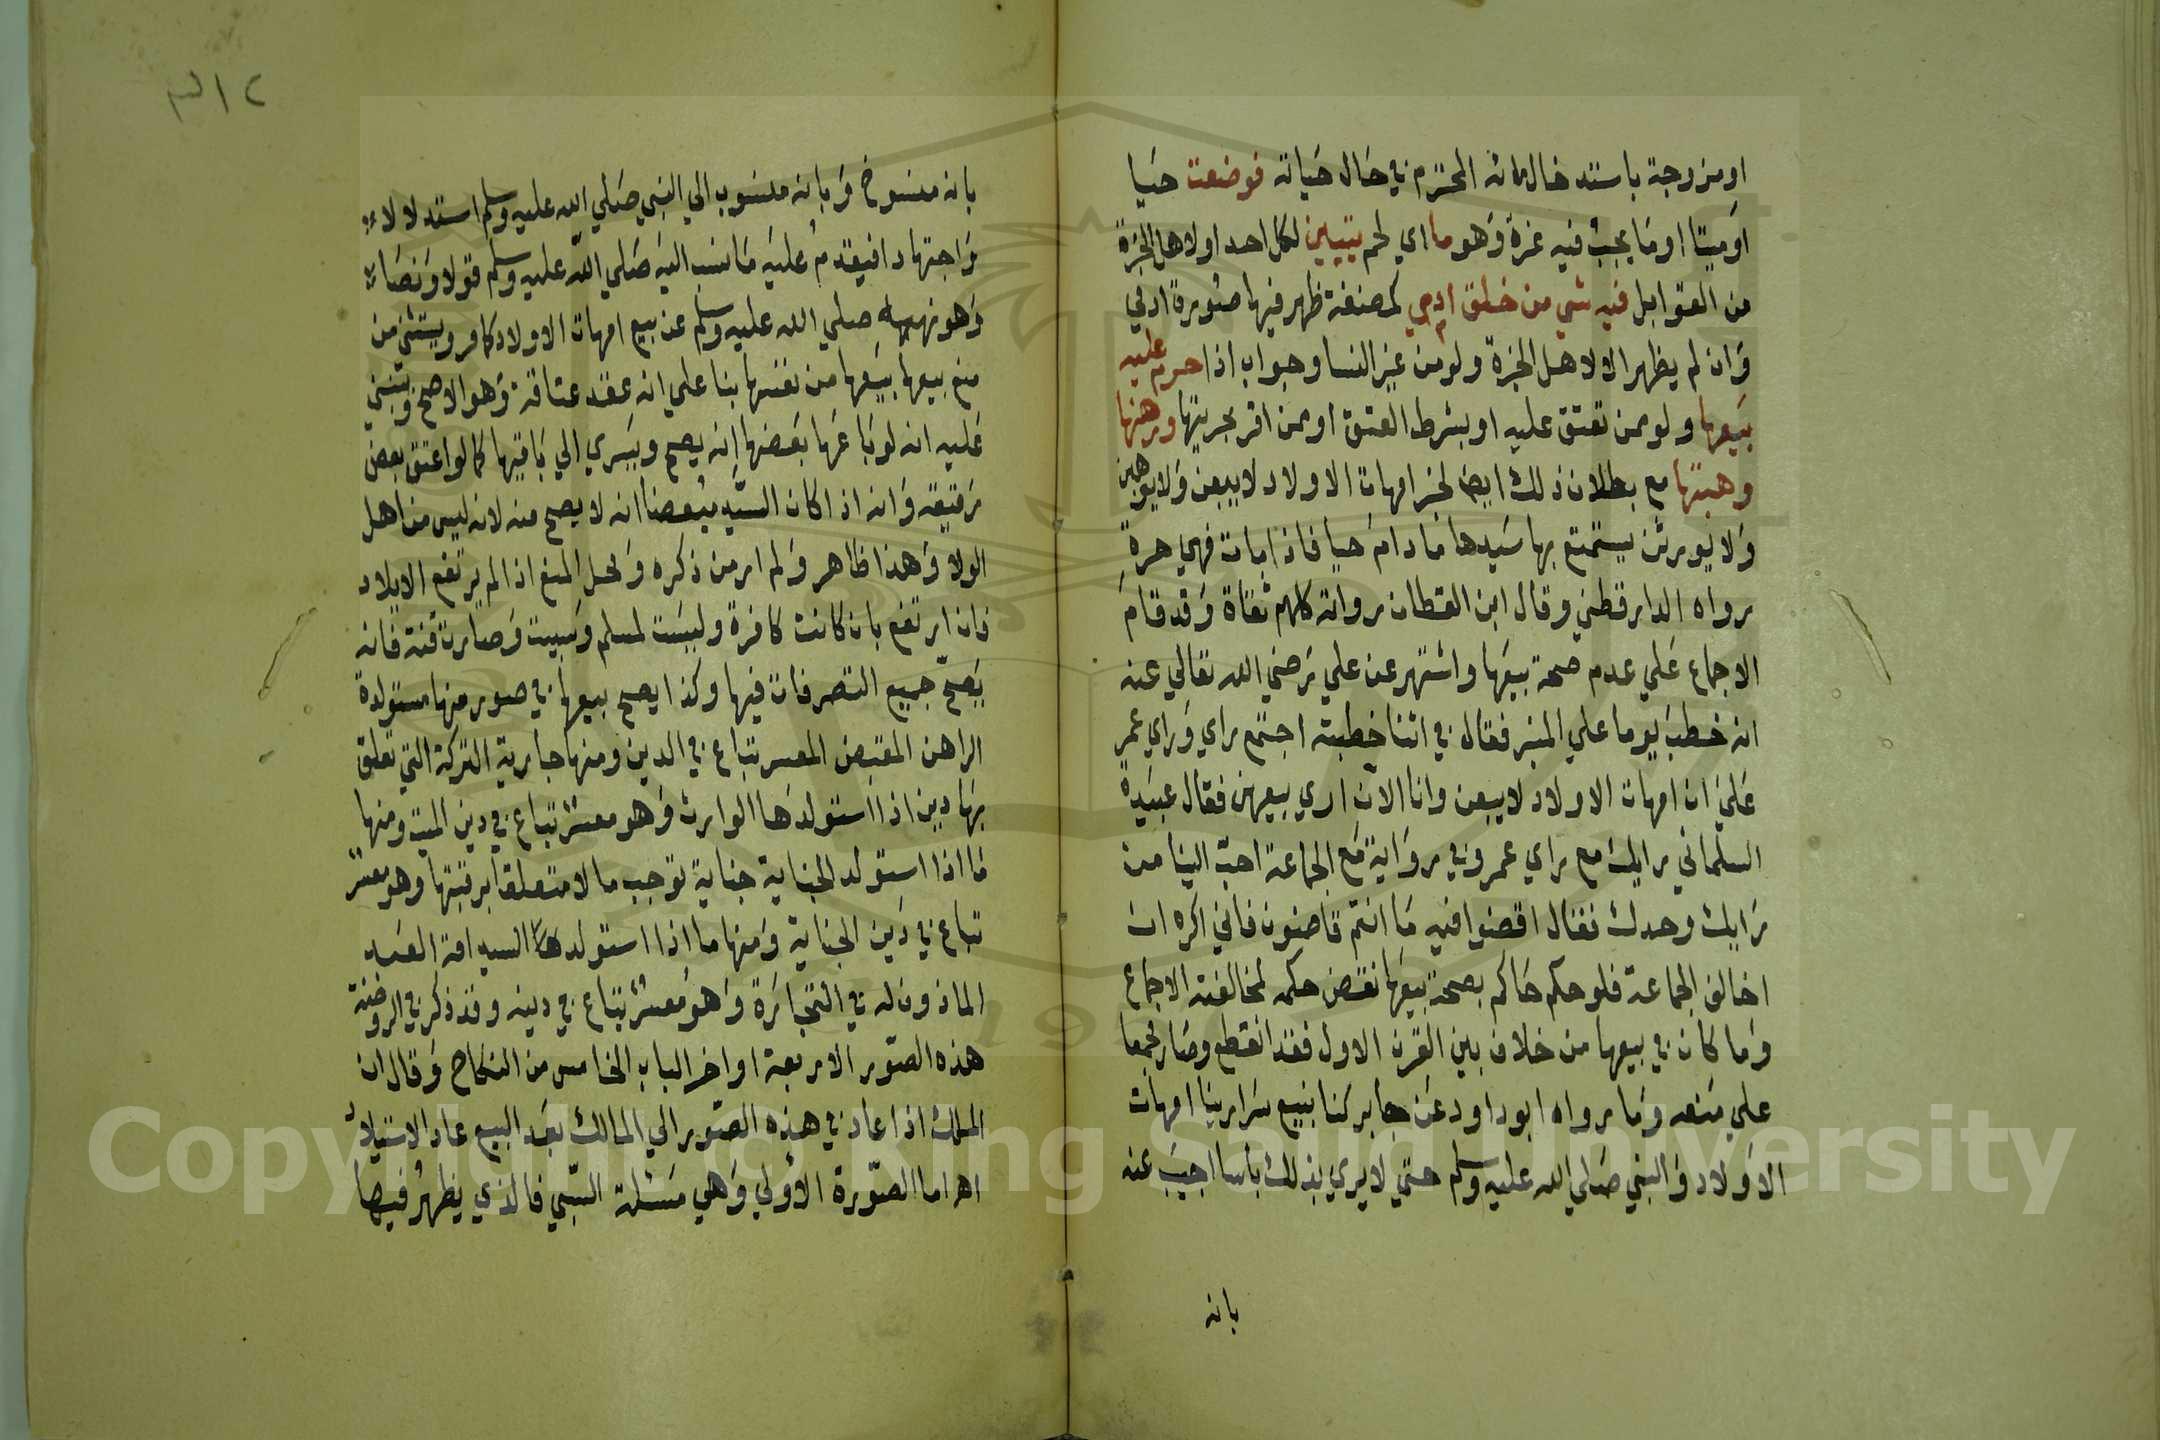 او مزوجة باستدخال مائه المحترم في حال حياته فوضعت حيا
او ميتا او ما يجب فيه غرة وهو ما اي لحم يتبين لكل احد اولاهل الخبرة
من القوابل فيه شي من خلق ادمي كمضغة ظهر فيها صورة ادمي
وان لم يظهر الا لاهل الخبرة ولو من غير النسا وجواب اذا حرم عليه
بيعها ولو ممن تعتق عليه او بشرط العتق او ممن اقر بحريتها ورهنها
وهبتها مع بطلان ذلك ايضا لخبر امهات الاولاد لا يبعن ولا يوهبن
ولا يورثن يستمتع بها سيدها ما دام حيا فاذا مات فهي حرة
رواه الدارقطني وقال ابن القطان رواته كلهم ثقاة وقد قام
الاجماع علي عدم صحة بيعها واشتهر عن علي رضي الله تعالي عنه
انه خطب يوما علي المنبر فقال في اثنا خطبته اجتمع راي وراي عمر
علي ان امهات الاولاد لا يبعن وانا الان اري بيعهن فقال عبيدة
السلماني رايك مع راي عمر وفي رواية مع الجماعة احب الينا من
رايك وحدك فقال اقضوا فيه ما انتم قاضون فاني اكره ان
اخالف الجماعة فلو حكم حاكم بصحة بيعها نقض حكمه لمخالفته الاجماع
وما كان في بيعها من خلاف بين القرن الاول فقد انقطع وصار مجمعا
علي منعه وما رواه ابو داود عن جابر كنا نبيع سرارينا امهات
الاولاد والنبي صلي الله عليه وسلم حتي لا يري بذلك باسا اجيب عنه
بانه
٣١٢
بانه منسوخ وبانه منسوب الي النبي صلي الله عليه وسلم استدلالا
واجتهادا فيقدم عليه ما نسب اليه صلي الله عليه وسلم قولا ونصا
وهو نهيه صلي الله عليه وسلم عن بيع امهات الاولاد كما مر ويستثني من
منع بيعها بيعها من نفسها بنا علي انه عقد عتاقة وهو الاصح وينبني
عليه انه لو باعها بعضها انه يصح ويسري الي باقيها كما لو اعتق بعض
رقيقه وانه اذا كان السيد مبعضا انه لا يصح منه لانه ليس من اهل
الولا وهذا ظاهر ولم ار من ذكره ومحل المنع اذا لم يرتفع الايلاد
فان ارتفع بان كانت كافرة وليست لمسلم وسبيت وصارت قنة فانه
يصح جميع التصرفات فيها وكذا يصح بيعها في صور منها مستولدة
الراهن المقبض المعسر تباع في الدين ومنها جارية التركة التي تعلق
بها دين اذا استولدها الوارث وهو معسر تباع في دين الميت ومنها
ما اذا استولد الجناية جناية توجب مالا متعلقا برقبتها وهو معسر
تباع في دين الجناية ومنها ما اذا استولدها السيد امة العبد
الماذون له في التجارة وهو معسر تباع في دينه وقد ذكر في الروضة
هذه الصور الاربعة اواخر الباب الخامس من النكاح وقال ان
الملك اذا عاد في هذه الصور الي المالك بعد البيع عاد الاستيلاد
اه اما الصورة الاولي وهي مسئلة السبي فالذي يظهر فيها
Copyright © King Saud University